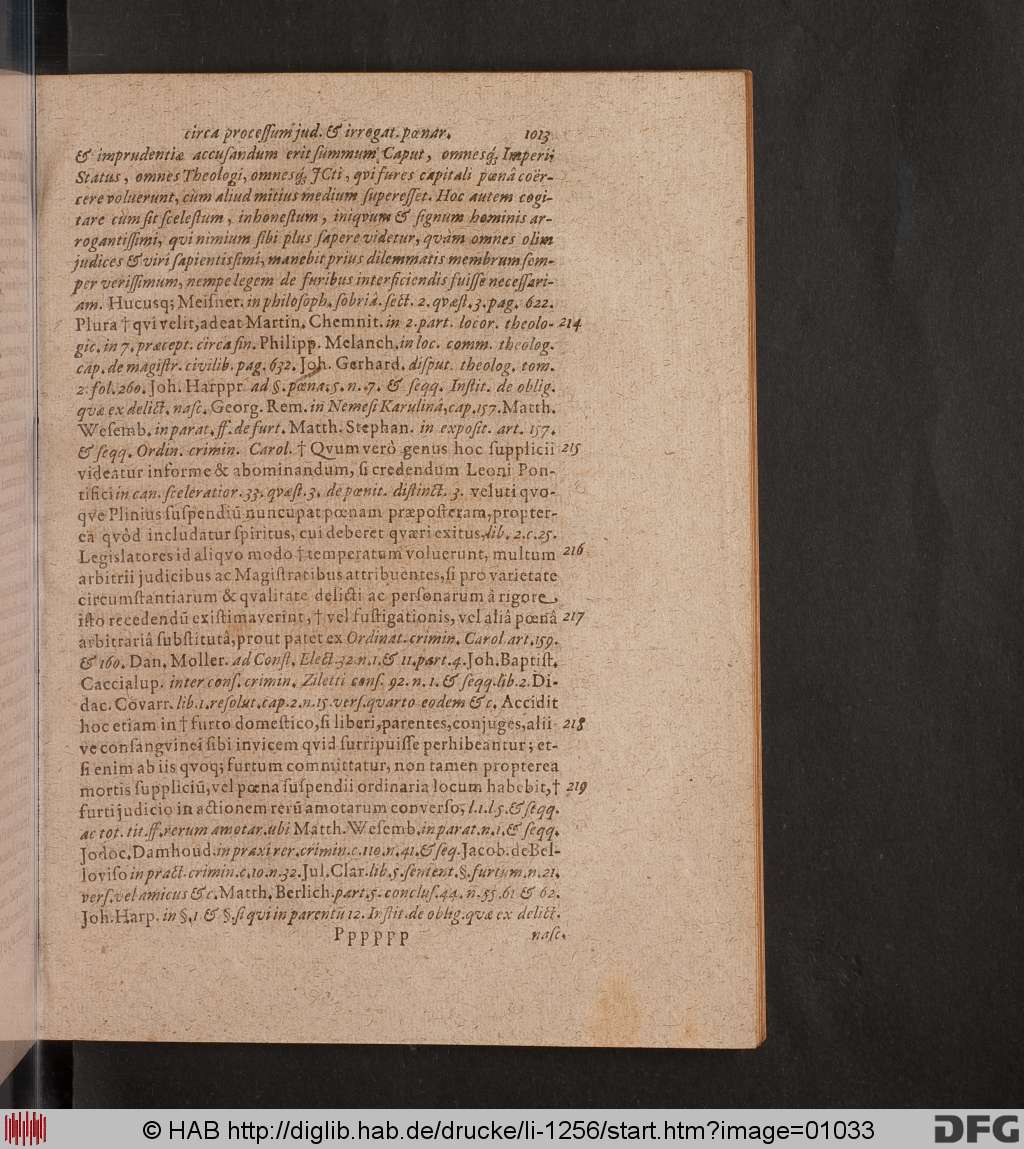 circa processum jud. & irrogat. pœnar. 1013
& imprudentiæ accusandum erit summum Caput, omnesq; Imperii
Status, omnes Theologi, omnesq; JCti, qvi fures capitali pœnâ coër-
cere voluerunt, cùm aliud mitius medium superesset. Hoc autem cogi-
tare cùm sit scelestum, inhonestum, iniqvum & signum hominis ar-
rogantissimi, qvi nimium sibi plus sapere videtur, qvàm omnes olim
judices & viri sapientissimi, manebit prius dilemmatis membrum sem-
per verissimum, nempe legem de furibus interficiendis fuisse necessari-
am. Hucusq; Meisner. in philosoph. sobriâ. sect. 2. qvæst. 3. pag. 622.
Plura † qvi velit, adeat Martin. Chemnit. in 2. part. locor. theolo- 214
gic. in 7. præcept. circa fin. Philipp. Melanch. in loc. comm. theolog.
cap. de magistr. civilib. pag. 632. Joh. Gerhard. disput. theolog. tom.
2. fol. 260. Joh. Harppr. ad §. pœna. 5. n. 7. & seqq. Instit. de oblig.
quæ ex delict. nasc. Georg. Rem. in Nemesi Karulinâ, cap. 157. Matth.
Wesemb. in parat. ff. de furt. Matth. Stephan. in exposit. art. 157.
& seqq. Ordin. crimin. Carol. † Qvum verò genus hoc supplicii 215
videatur informe & abominandum, si credendum Leoni Pon-
tifici in can. sceleratior. 33. qvæst. 3. de pœnit. distinct. 3. veluti qvo-
qve Plinius suspendiũ nuncupat pœnam præposteram, propter-
ea qvòd includatur spiritus, cui deberet qværi exitus, lib. 2. c. 25.
Legislatores id aliqvo modo † temperatum voluerunt, multum 216
arbitrii judicibus ac Magistratibus attribuentes, si pro varietate
circumstantiarum & qvalitate delicti ac personarum à rigore
isto recedendũ existimaverint, † vel fustigationis, vel aliâ pœnâ 217
arbitrariâ substitutâ, prout patet ex Ordinat. crimin. Carol art. 159.
& 160. Dan. Moller. ad Const. Elect. 32. n. 1. & 11. part. 4. Joh. Baptist.
Caccialup. inter cons. crimin. Ziletti cons. 92. n. 1. & seqq. lib. 2. Di-
dac. Covarr. lib. 1. resolut. cap. 2. n. 15. vers. quarto eodem & c. Accidit
hoc etiam in † furto domestico, si liberi, parentes, conjuges, alii- 218
ve consangvinei sibi invicem qvid surripuisse perhibeantur; et-
si enim ab iis qvoq; furtum committatur, non tamen propterea
mortis suppliciũ, vel pœna suspendii ordinaria locum habebit, † 219
furti judicio in actionem rerũ amotarum converso; l. 1. l. 5. & seqq.
ac tot. tit. ff. rerum amotar. ubi Matth. Wesemb. in parat. n. 1. & seqq.
Jodoc. Damhoud. in praxi rer. crimin. c. 110. n. 41. & seq. Jacob. de Bel-
loviso in pract. crimin. c. 10. n. 32. Jul. Clar. lib. 5. sentent. §. furtum. n. 21.
vers. vel amicus & c. Matth. Berlich. part. 5. conclus. 44. n. 55. 61 & 62.
Joh. Harp. in §. 1 & §. si qvi in parentũ 12. Instit. de oblig. quæ ex delict.
Pppppp nasc.
© HAB http://diglib.hab.de/drucke/li-1256/start.htm?image=01033
DFG